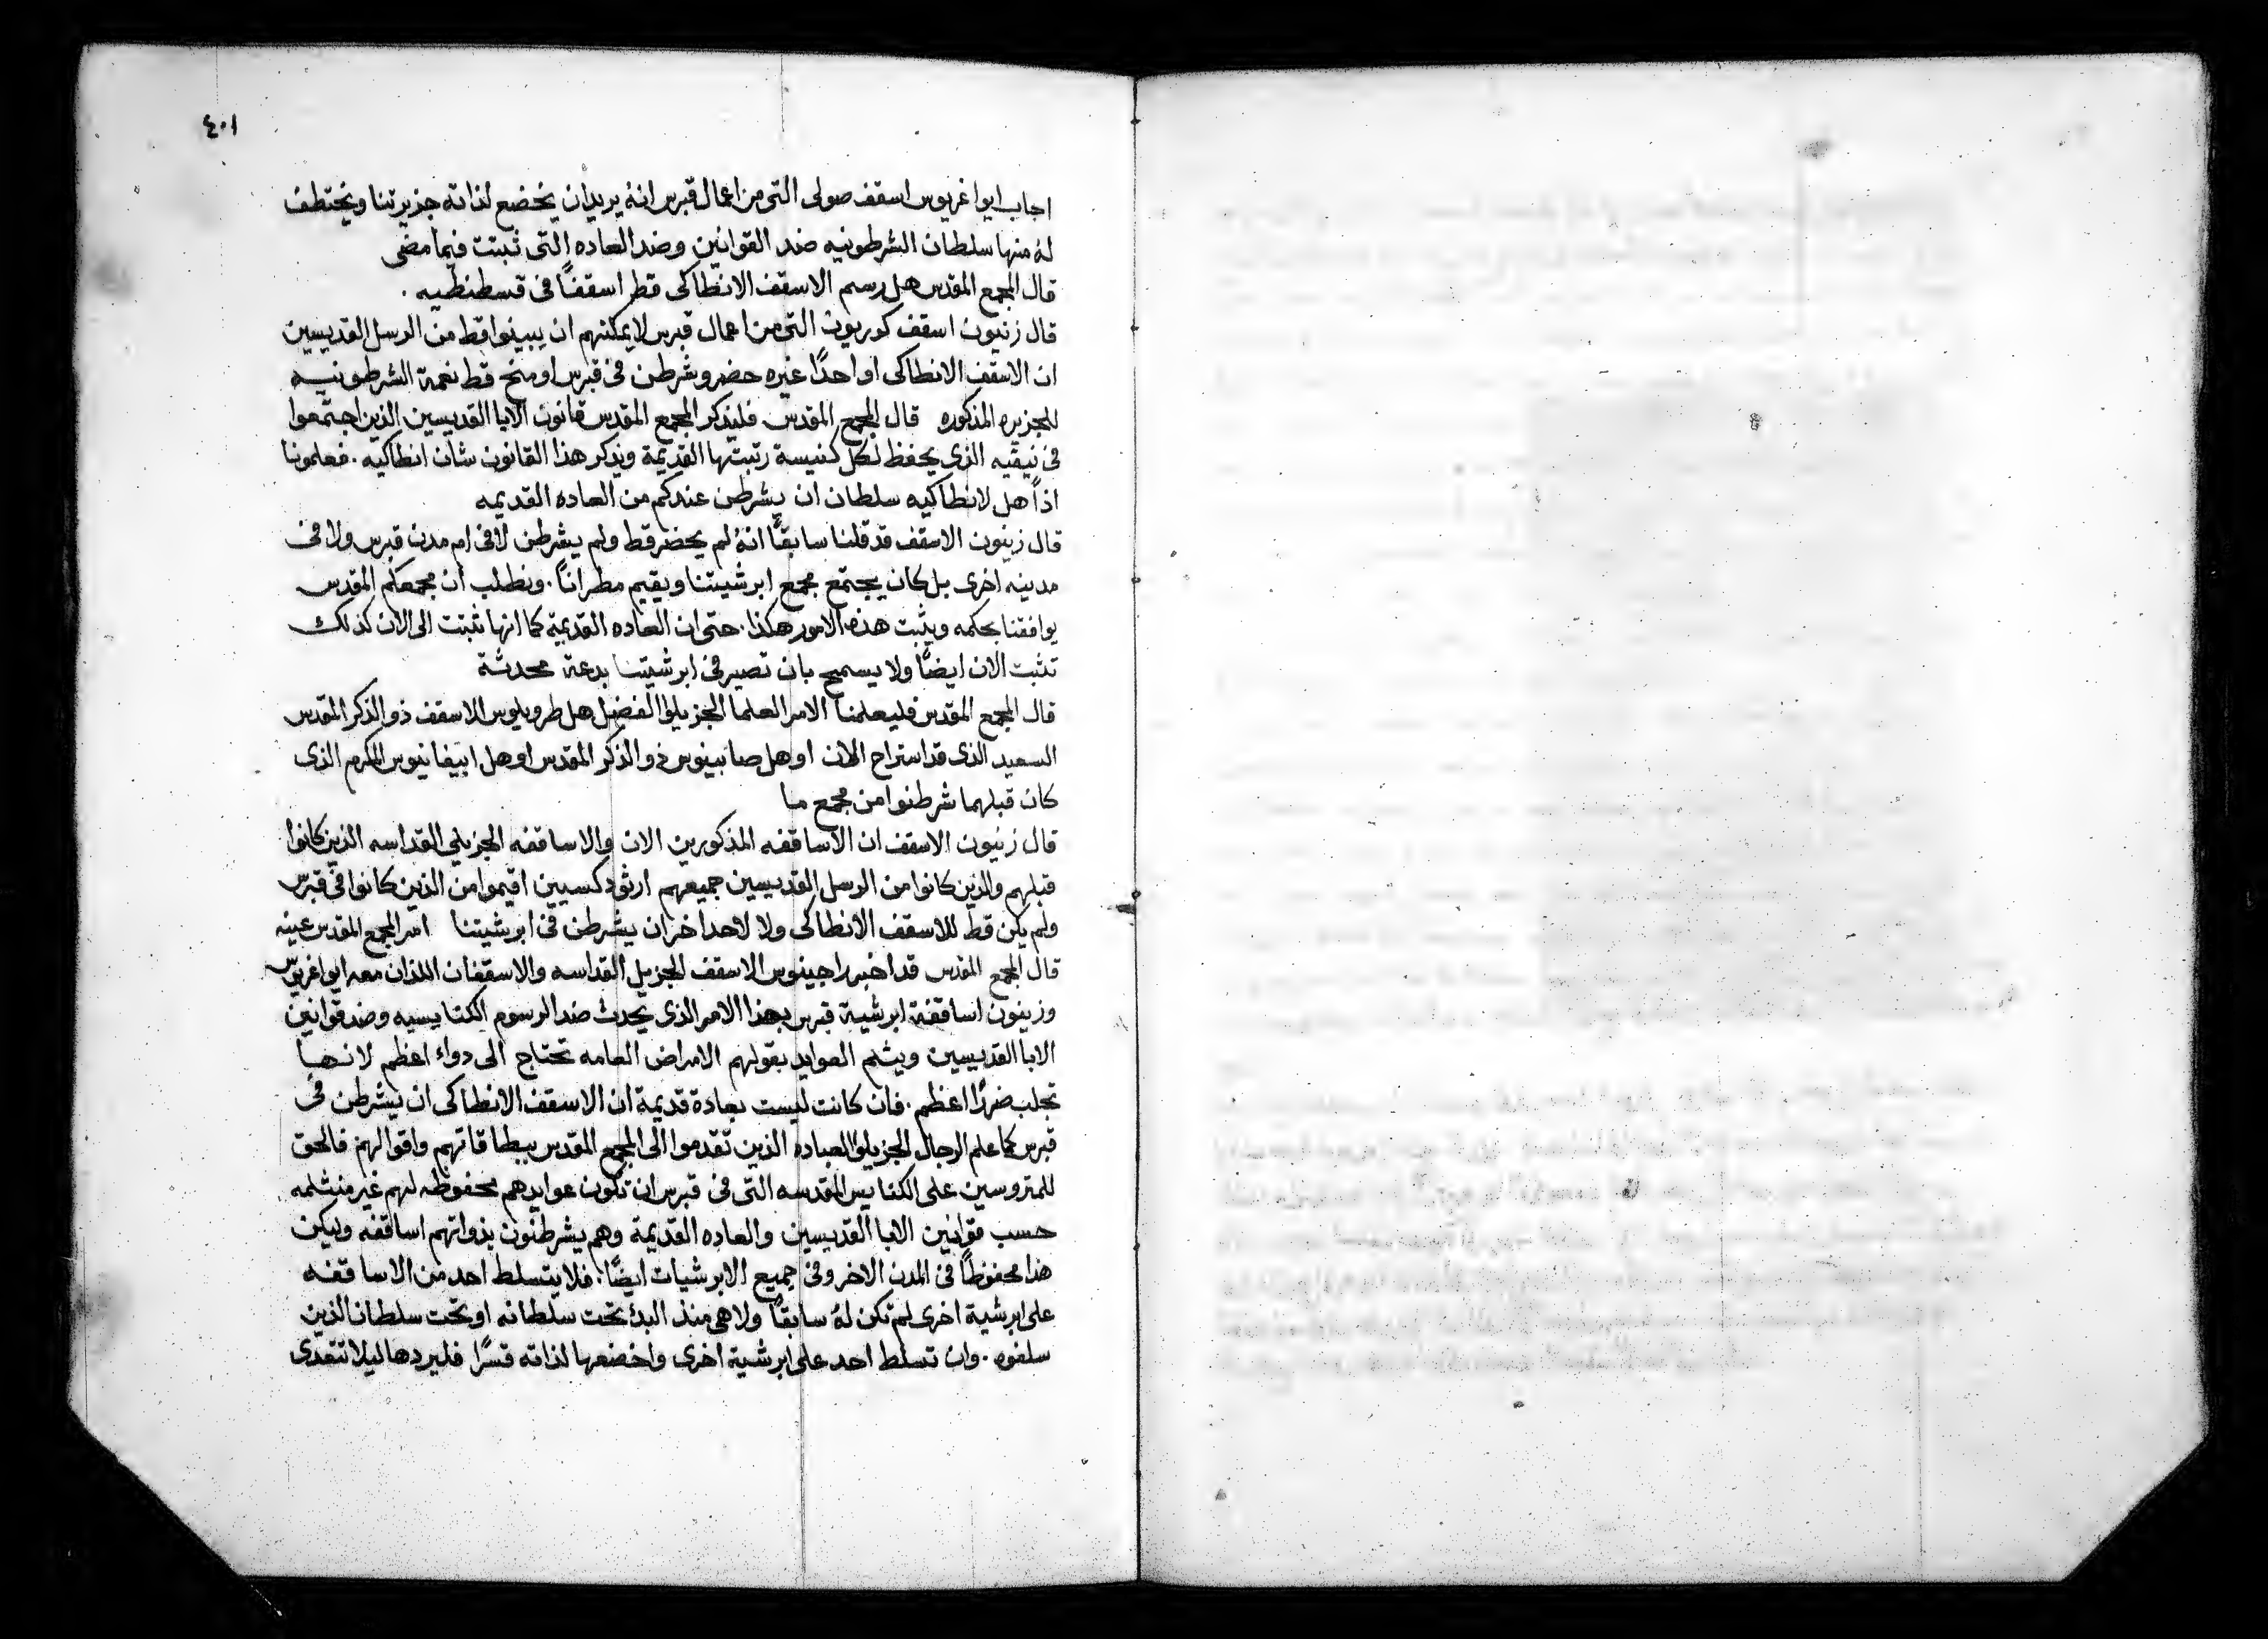 ٤٠١
اجاب ايواغريوس اسقف صولى التى من اعمال قبرس انهُ يريد ان يخضع لذاته جزيرتنا ويختطف
لهُ منها سلطان الشرطونيه ضد القوانين وضد العاده التى تبتت فيما مضى
قال المجمع المقدس هل رسم الاسقف الانطاكى قط اسقفًا فى قسطنطيه .
قال زنيون اسقف كوريون التى من اعمال قبرس لا يمكنهم ان يبينوا قط من الرسل القديسين
ان الاسقف الانطاكى او احدًا غيره حضر وشرطن فى قبرس او منح قط نعمة الشرطونيه
للجزيره المذكوره قال المجمع المقدس فليذكر المجمع المقدس قانون الابا القديسين الذين اجتمعوا
فى نيقيه الذى يحفظ لكل كنيسة رتبتها القديمة ويذكر هذا القانون شان انطاكيه . فعلمونا
اذاً هل لانطاكيه سلطان ان يشرطن عندكم من العاده القديمه
قال زينون الاسقف قد قلنا سابقًا انهُ لم يحضر قط ولم يشرطن لا فى ام مدن قبرس ولا فى
مدينه اخرى بل كان يجتمع مجمع ابرشيتنا ويقيم مطرانًا . ونطلب ان مجمعكم المقدس
يوافقنا بحكمه ويثبت هذه الامور هكذا . حتى ان العاده القديمة كما انها ثبتت الى الان كذلك
تثبت الان ايضًا ولا يسمح بان تصير فى ابرشيتنا بدعة محدثة
قال المجمع المقدس فليعلمنا الامر العلما الجزيلوا الفضل هل طرويلوس الاسقف ذو الذكر المقدس
السعيد الذى قد استراح الان او هل صابينوس ذو الذكر المقدس او هل ابيفانيوس المكرم الذى
كان قبلهما شرطنوا من مجمع ما
قال زنيون الاسقف ان الاساقفه المذكورين الان والاساقفه الجزيلى القداسه الذين كانوا
قبلهم والذين كانوا من الرسل القديسين جميعهم ارثودكسيين اقيموا من الذين كانوا فى قبرس
ولم يكن قط للاسقف الانطاكى ولا لاحد اخر ان يشرطن فى ابرشيتنا امر المجمع المقدس عينه
قال المجمع المقدس قد اخبر راجينوس الاسقف الجزيل القداسه والاسقفان اللذان معه ايواغريوس
وزينون اساقفة ابرشية قبرس بهذا الامر الذى يحدث ضد الرسوم الكنايسيه وضد قوانين
الابا القديسين ويثلم العوايد بقولهم الامراض العامه تحتاج الى دواء اعظم لانها
تجلب ضررًا اعظم . فان كانت ليست بعادة قديمة ان الاسقف الانطاكى ان يشرطن فى
قبرس كما علم الرجال الجزيلوا العباده الذين تقدموا الى المجمع المقدس ببطاقاتهم واقوالهم فالحق
للمتروسين على الكنايس المقدسه التى فى قبرس ان تكون عوايدهم محفوظه لهم غير منثلمه
حسب قوانين الابا القديسين والعاده القديمة وهم يشرطنون بذواتهم اساقفه وليكن
هذا محفوظاً فى المدن الاخر وفى جميع الابرشيات ايضًا . فلا يتسلط احد من الاساقفه
على ابرشية اخرى لم تكن لهُ سابقاً ولا هى منذ البدء تحت سلطانه او تحت سلطان الذين
سلفوه . وان تسلط احد على ابرشية اخرى واخضعها لذاته قسرًا فليردها ليلا تتعدى